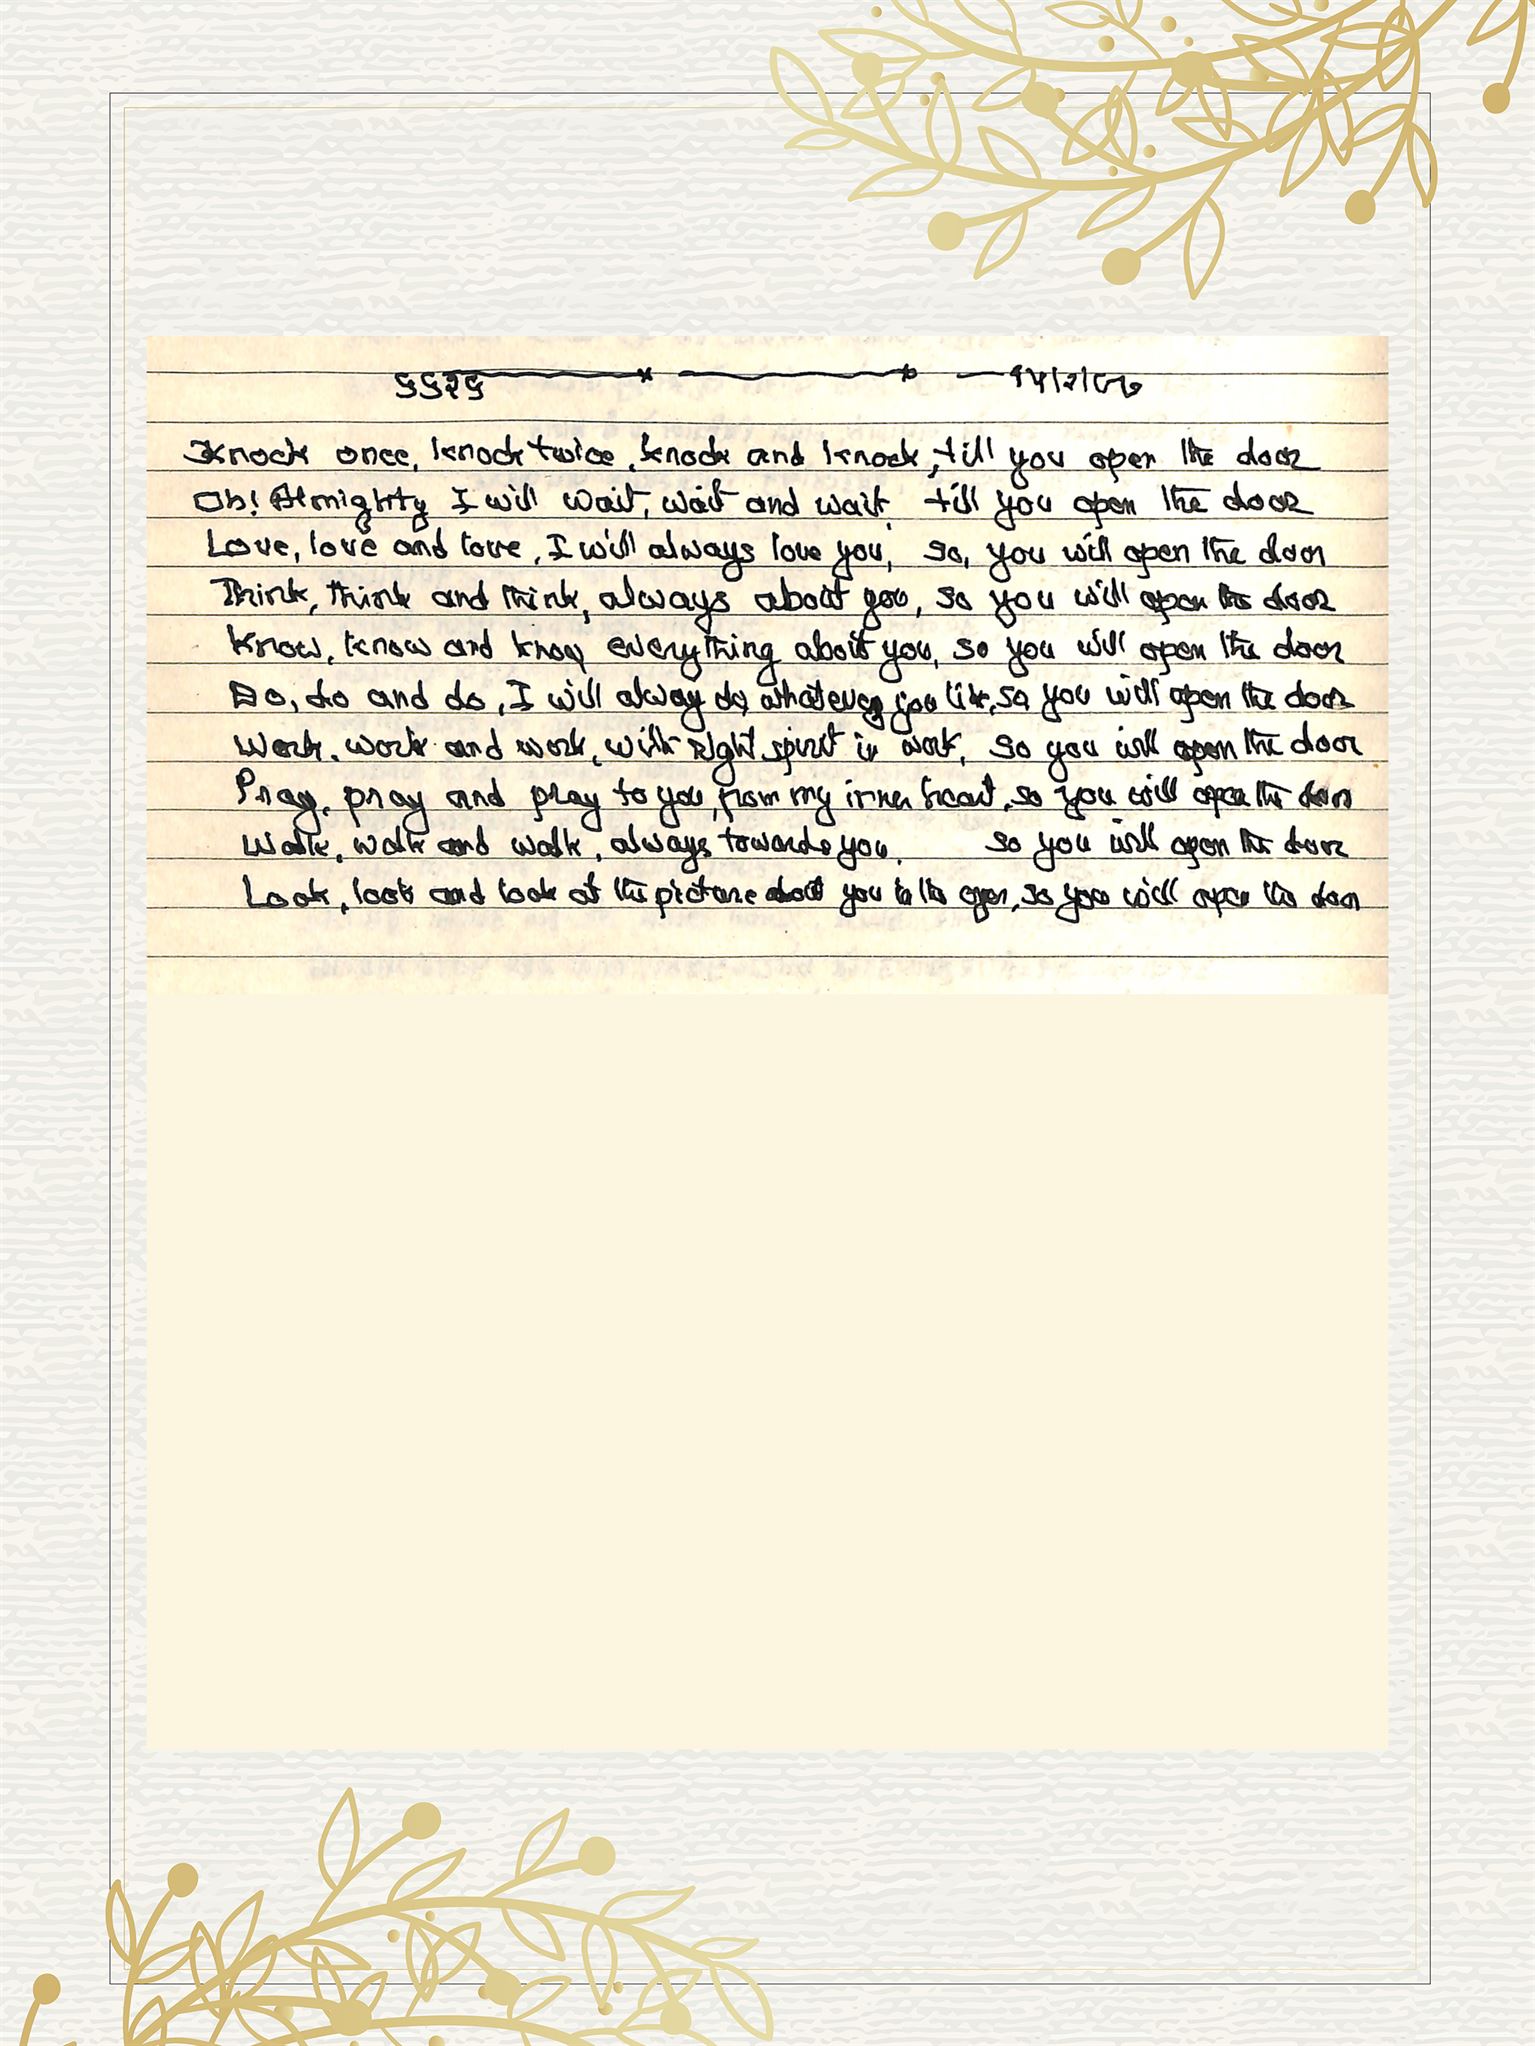 Knock once, knock twice, knock and knock, till you open the door
Oh! Almighty I will wait, wait and wait, till you open the door
Love, love and love, I will always love you, so, you will open the door
Think, think and think, always about you, so you will open the door
Know, know and know everything about you, so you will open the door
Do, do and do, I will alway do, whatever you like, so you will open the door
Work, work and work, with right spirit in work, so you will open the door
Pray, pray and pray to you, from my inner heart, so you will open the door
Walk, walk and walk, always towards you, so you will open the door
Look, look and look at the picture about you in the eyes, so you will open the door